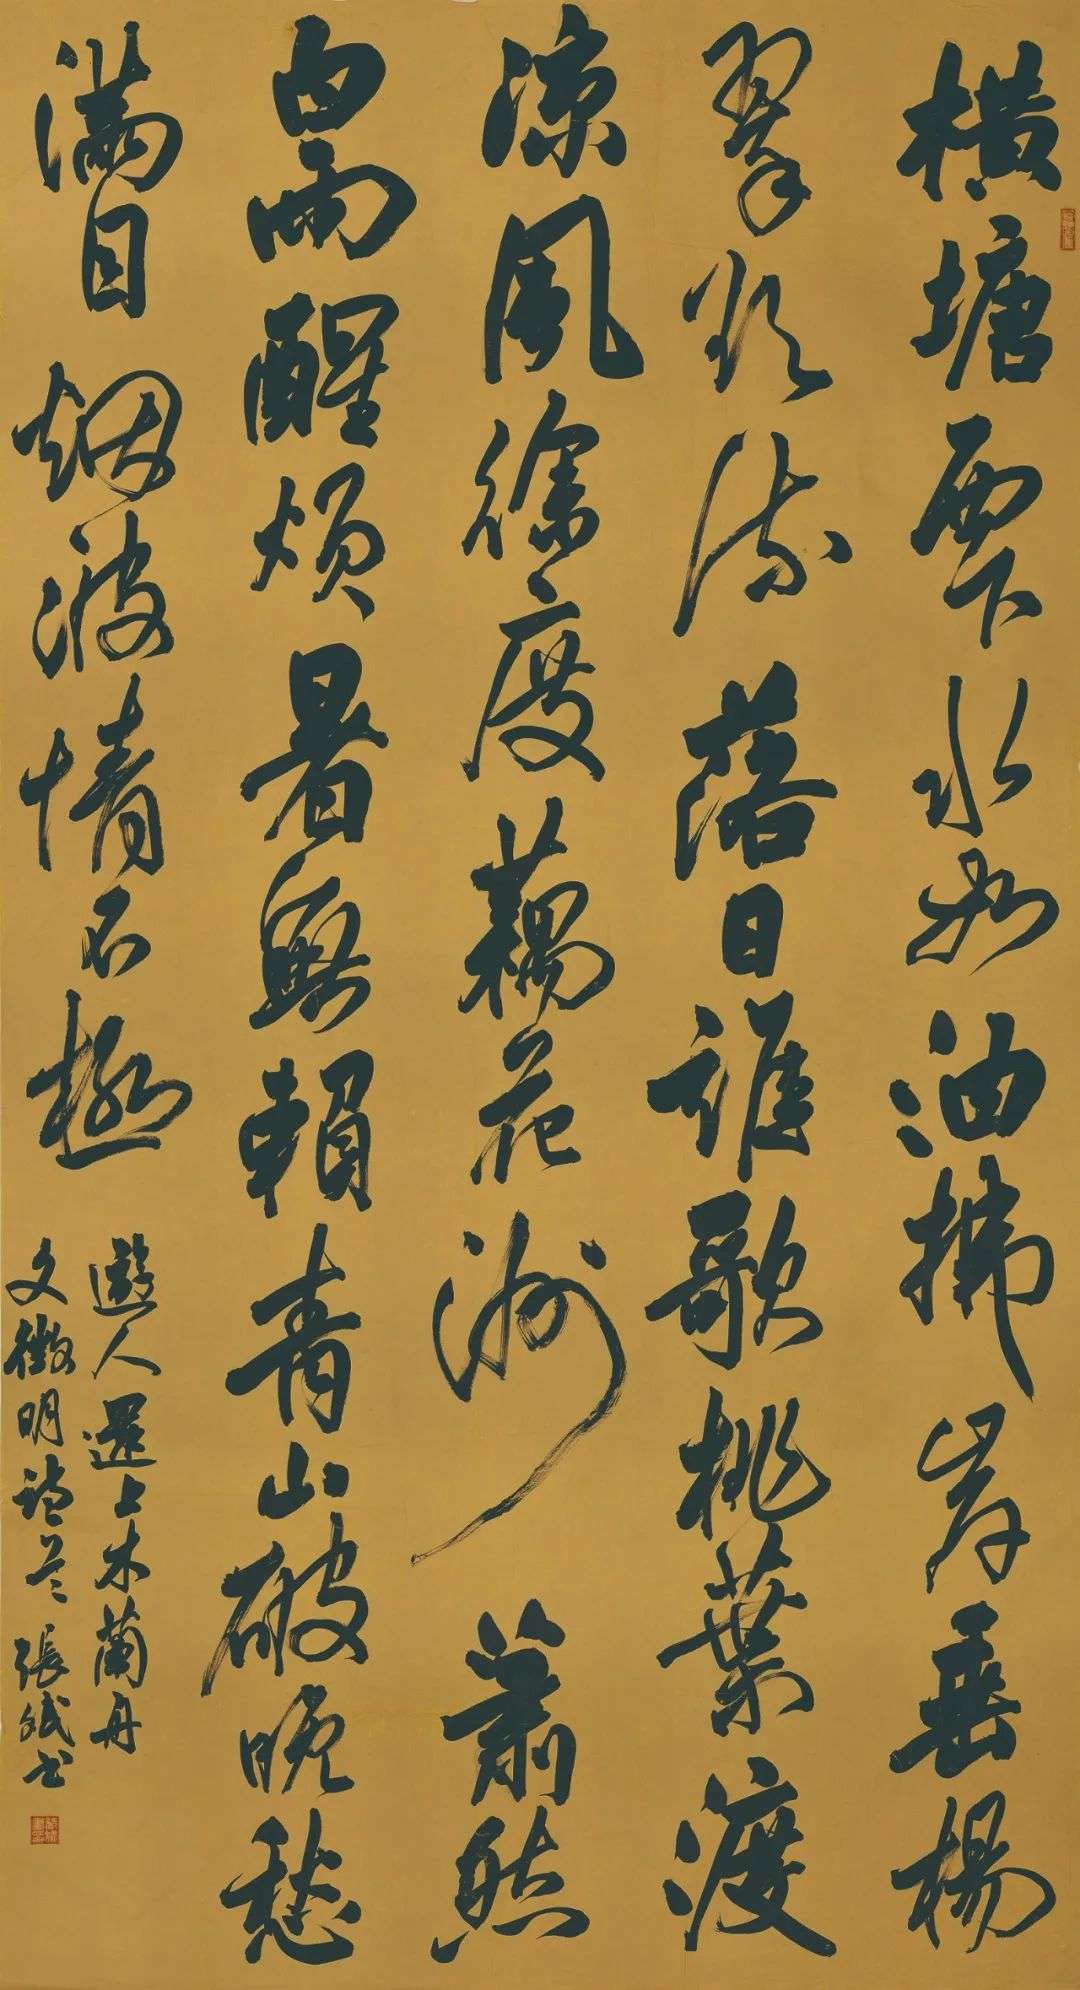 橫塘雨下水如油拂岸垂楊
翠欲流落日誰歌桃葉渡
涼風徐度藕花洲蕭然
白雨醒煩暑無賴青山破晚愁
滿目烟波情不極
遊人還上木蘭舟
文徵明詩 張斌书